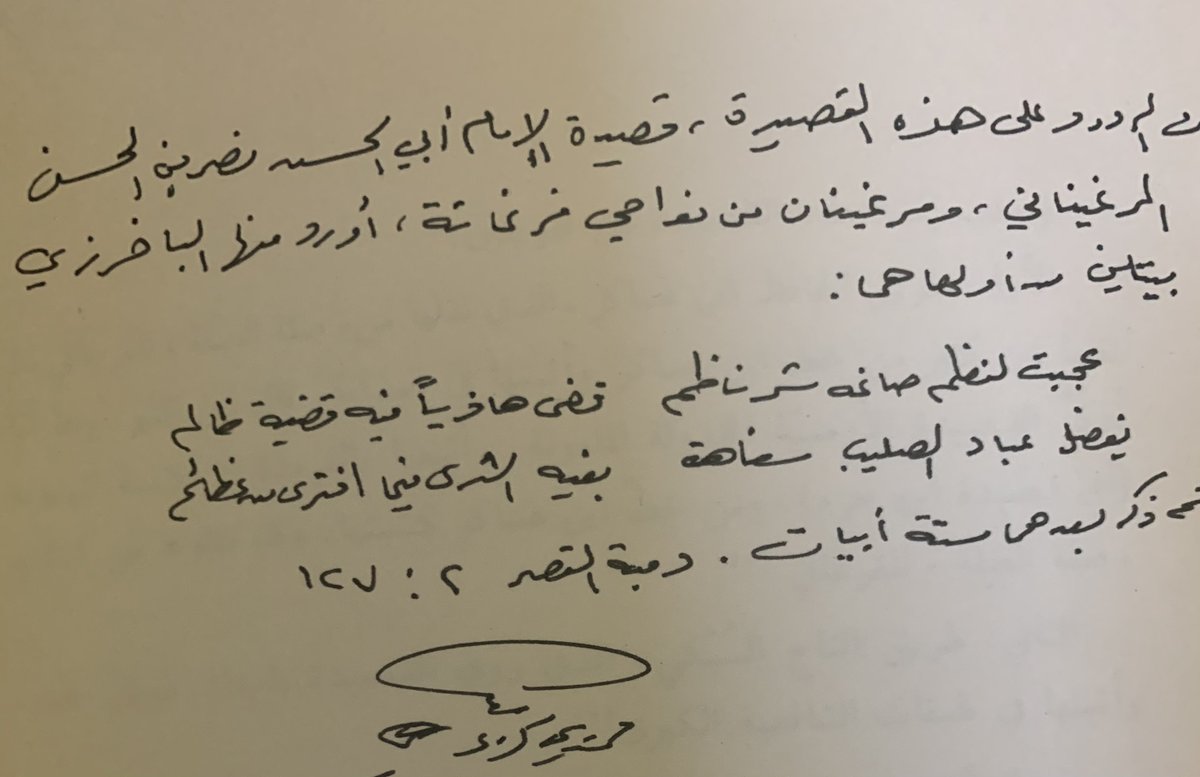 من الردود على هذه القصيدة، قصيدة الإمام أبي الحسن نصر بن الحسن
المرغيناني، ومرغينان من نواحي فرغانة، أورد منها الباخرزي
بيتين من أولها هما:
عجبت لنظم صاغه شر ناظم قضى هاذياً فيه قضية ظالم
يفضل عباد الصليب سفاهة بفيه الثرى فيما افترى من عظائم
ثم ذكر بعدهما ستة أبيات. دمية القصر ٢: ١٢٧